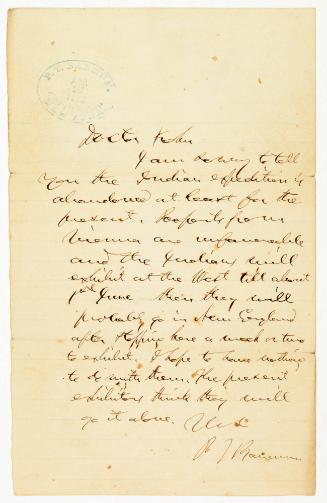 P. T. BARNUM,
Doctor Kohn
I am sorry to tell
you the Indian expedition is
abandoned at least for the
present. Reports from
Vienna are unfavorable
and the Indians will
exhibit at the West till about
1st June then they will
probably go in New England
after stopping here a week or two
to exhibit. I hope to have nothing
to do with them. The present
exhibitors think they will
go it alone.
P T Barnum